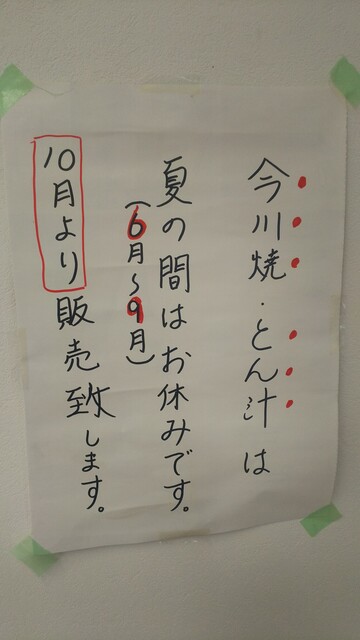 今川焼・とん汁は
夏の間はお休みです。
(6月~9月)
10月より販売致します。